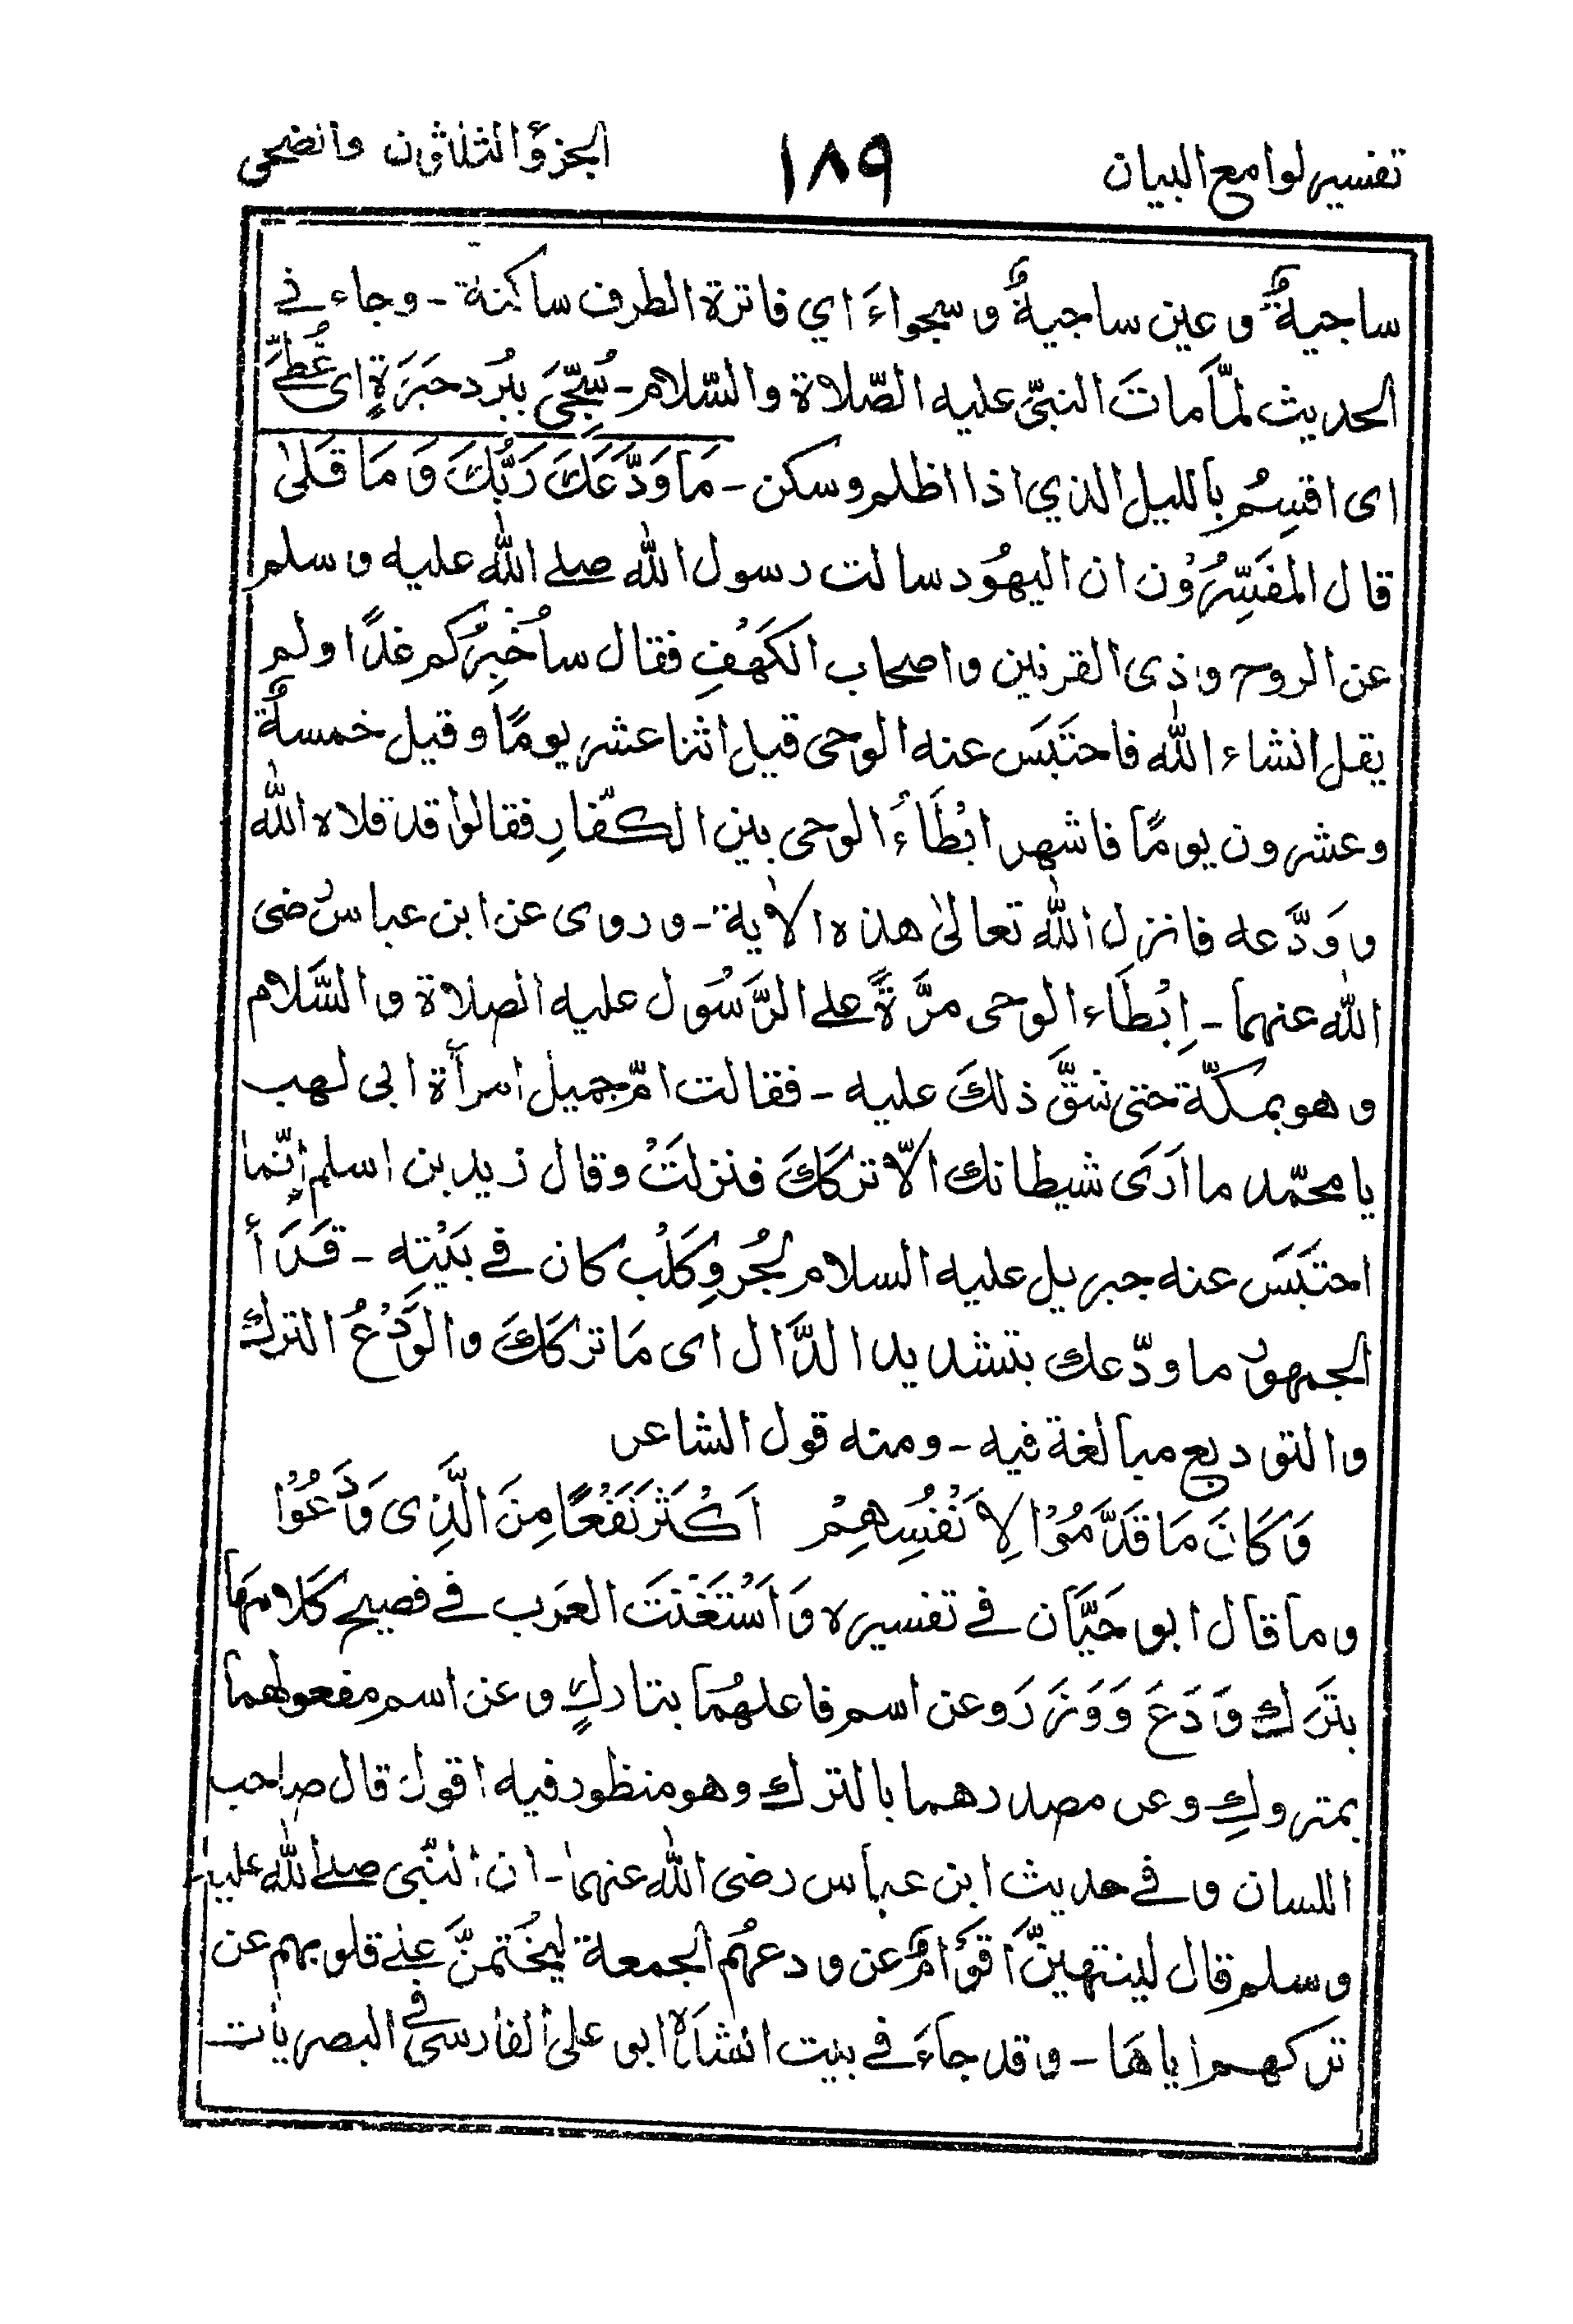 تفسير لوامع البيان ١٨٩ الجزؤ الثلاثون والضحى
ساجيةٌ وعين ساجيةٌ وسجواءَ اي فاترة الطرف ساكنة - وجاء في
الحديث لمّا ماتَ النبيّ عليه الصّلاة والسّلام - سُجِّيَ ببُرد حبَرَةٍ اى غُطِّيَ
اى اقسِمُ بالليل الذي اذا اظلم وسكن - مَا وَدَّعَكَ رَبُّكَ وَمَا قَلىٰ
قال المفَسِّرُوْن ان اليهُود سالت رسول الله صلى الله عليه وسلم
عن الروح وذى القرنين واصحاب الكَهْفِ فقال ساُخْبِرُكم غدًا ولم
يقل انشاء الله فاحتَبَس عنه الوحى قيل اثنا عشر يومًا وقيل خمسةٌ
وعشرون يومًا فاشهر ابْطَأء الوحى بين الكفّارِ فقالوا قد قلاه الله
ووَدَّعه فانزل الله تعالىٰ هذه الاٰية - وروى عن ابن عباس رضى
الله عنهما - اِبْطَاء الوحى مرَّةً على الرَّسُول عليه الصلاة والسَّلام
وهو بمكّة حتى شقَّ ذلكَ عليه - فقالت امّ جميل امرأة ابى لهب
يا محمّد ما اَرَى شيطانك الّا تركَكَ فنزلتْ وقال زيد بن اسلم اِنّما
احتَبَسَ عنه جبريل عليه السلام لجُروِ كَلْب كان فى بَيْتِه - قَرَأ
الجمهور ما ودّعك بتشديد الدَّال اى مَا تركَكَ والوَدْعُ الترك
والتوديع مبالغة فيه - ومنه قول الشاعر
وَكَانَ مَا قَدَّمُوْا لِاَنْفُسِهِمْ اَكْثَرَ نَفْعًا مِنَ الَّذِى وَدَعُوْا
وما قال ابو حَيَّان فى تفسيره وَاَسْتَغْنَتَ العَرَب فى فصيح كَلامهَا
بتَرَك وَدَعَ وَوَزَرَ وعن اسم فاعلهُمَا بتاركٍ وعن اسم مفعولهما
بمتروكٍ وعن مصدرهما بالترك وهو منظور فيه اقول قال صاحب
اللسان وفى حديث ابن عباس رضى الله عنهما - ان النّبى صلى الله عليه
وسلم قال لينتهينَّ اَقوَامٌ عن ودعهُم الجمعة ليُخْتمنَّ على قلوبهم عن
تركهم اياهَا - وقد جاءَ فى بيت انشده ابى على الفارسى فى البصريات